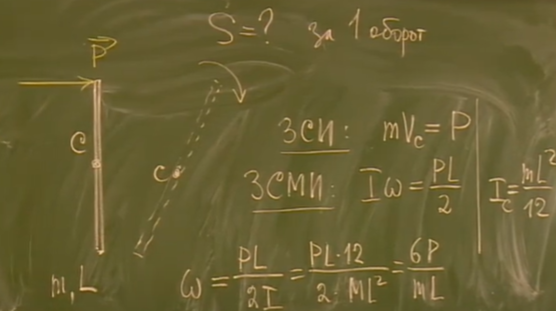 S = ? за 1 оборот
P
C
C
m, L
ЗСИ: mV_c = P
ЗСМИ: Iω = PL/2
I_c = mL²/12
ω = PL/2I = PL·12/2·ML² = 6P/mL